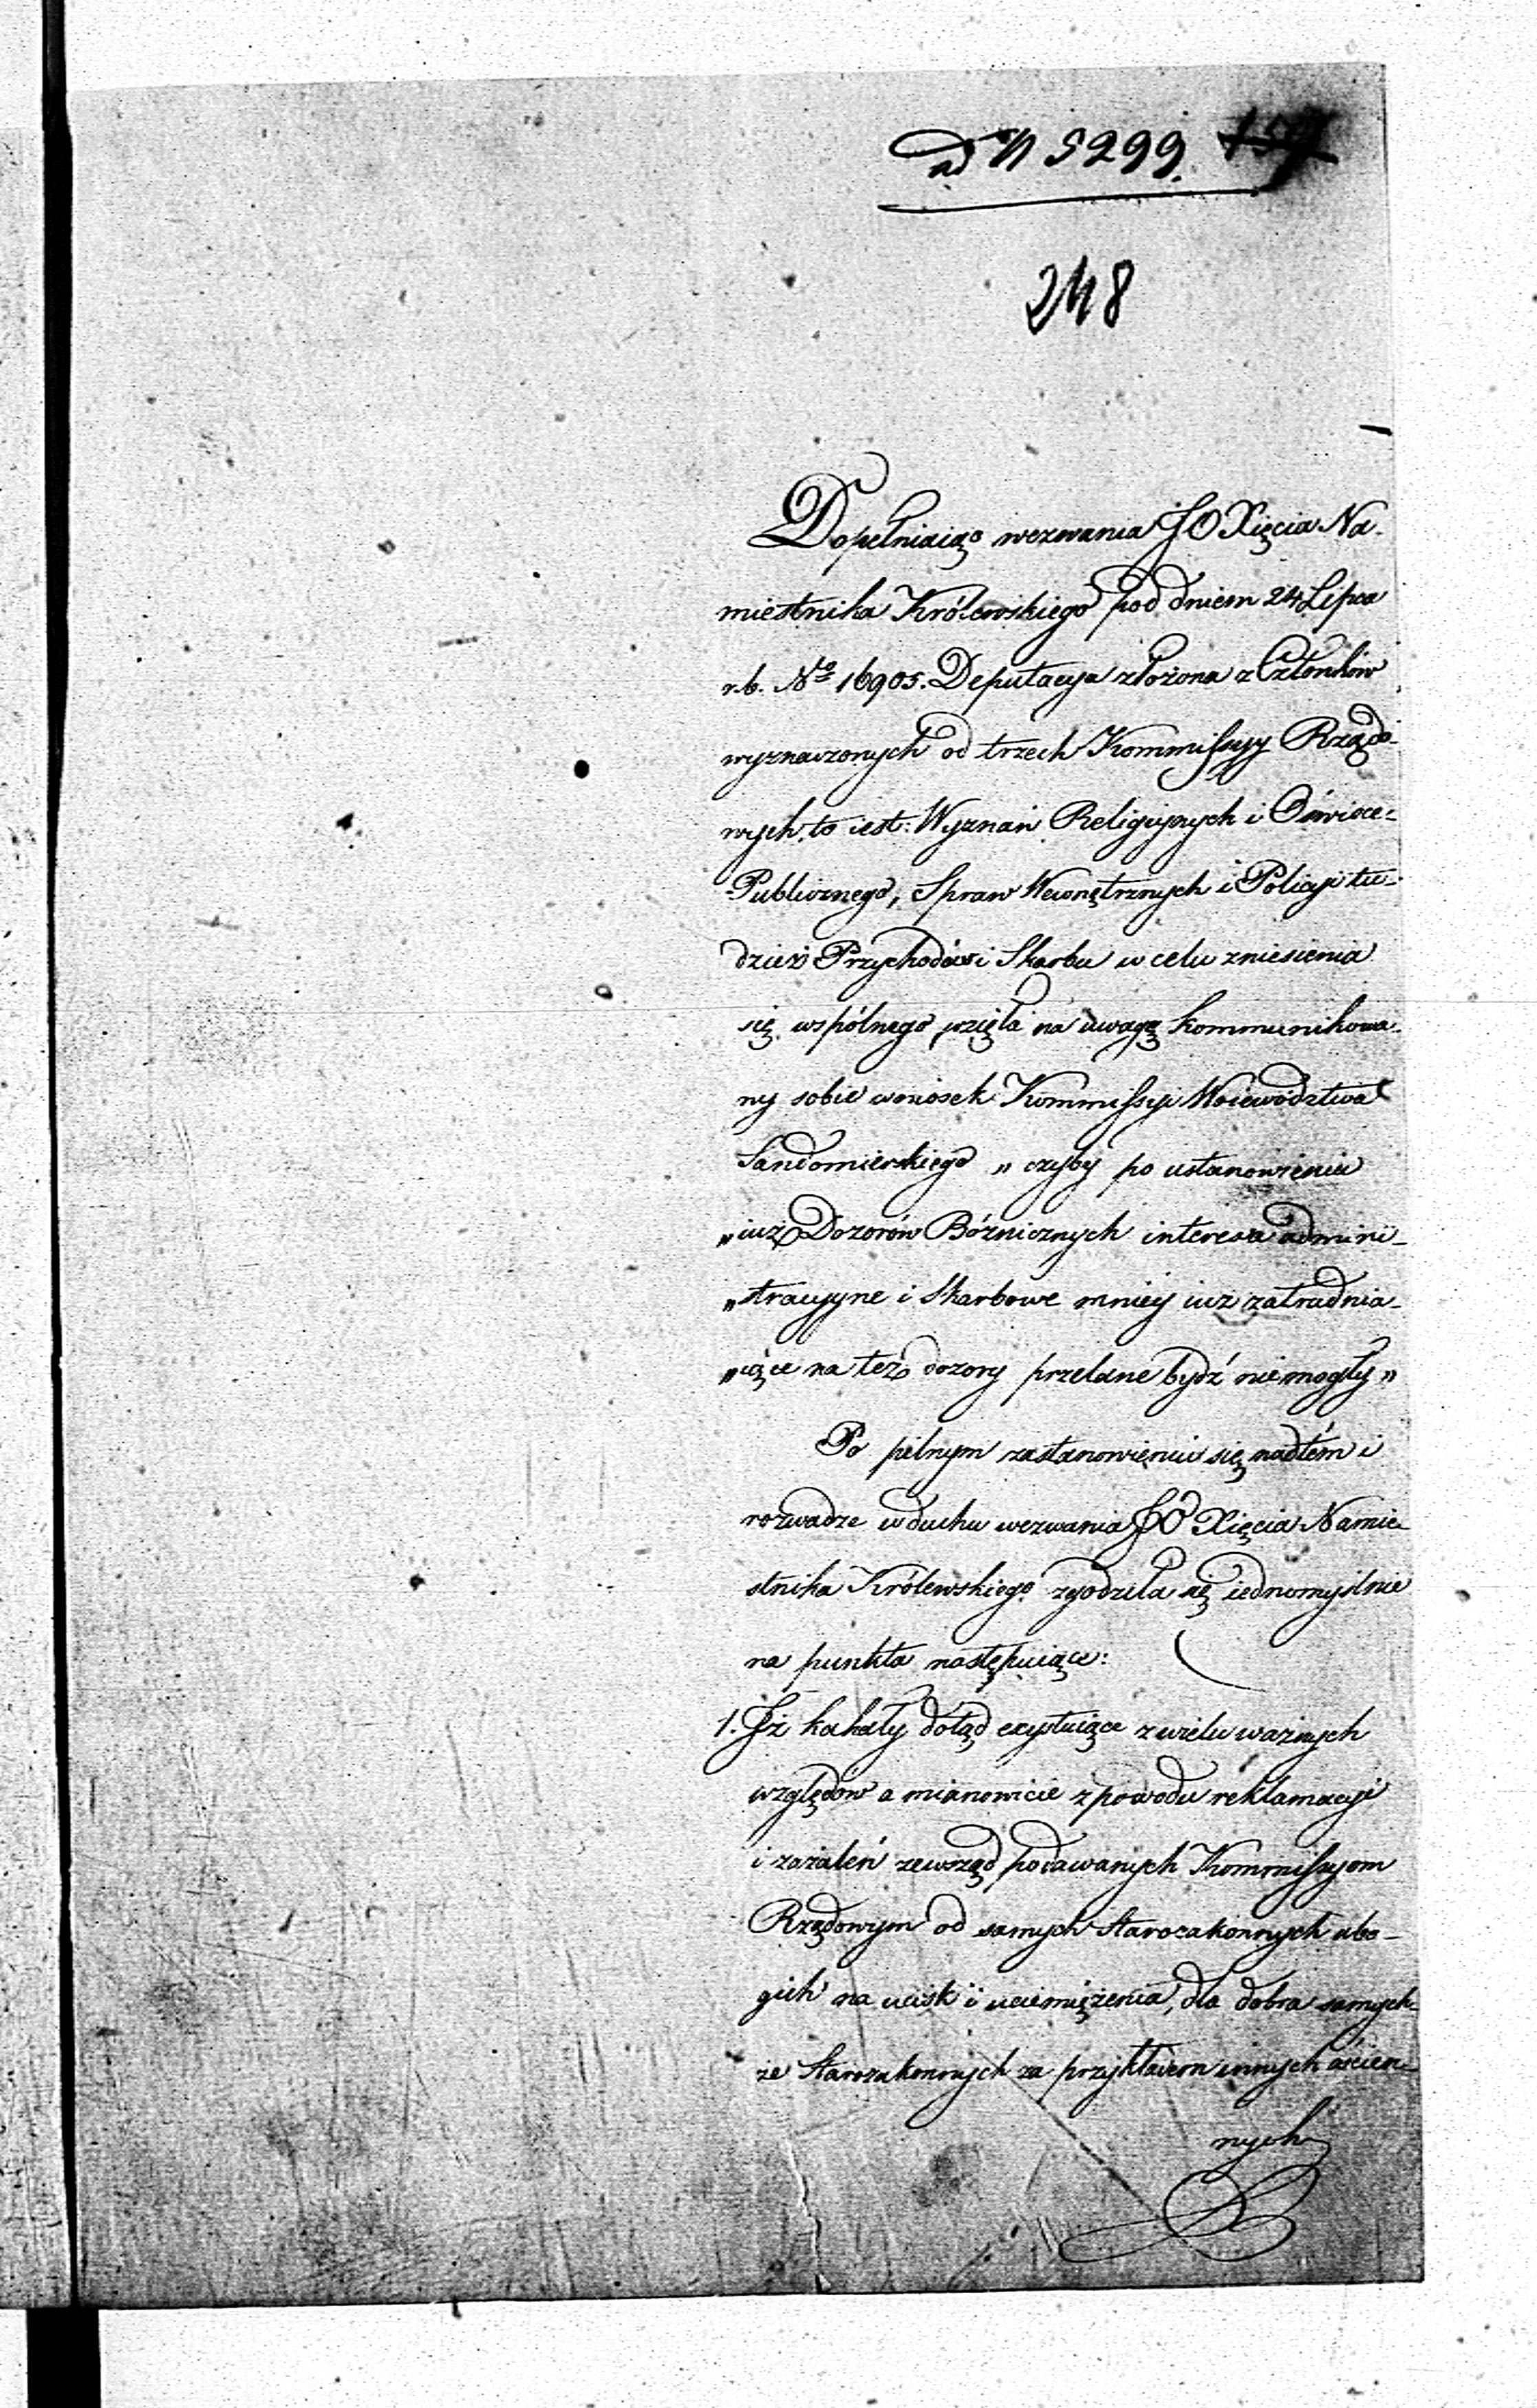 ad N 5299.
248
Dopełniaiąc wezwania JO Xięcia Na-
miestnika Królewskiego pod dniem 24 Lipca
r.b. No 16905. Deputacya złożona z Członków
wyznaczonych od trzech Kommissyy Rządo-
wych, to iest: Wyznań Religijnych i Oświece-
Publicznego, Spraw Wewnętrznych i Policyi tu-
dzież Przychodów i Skarbu w celu zniesienia
się wspólnego wzięła na uwagę kommunikowa-
ny sobie wniosek Kommissyi Woiewództwa
Sandomierskiego „ czyby po ustanowieniu
„ iuż Dozorów Bóżnicznych interesa admini-
„ stracyyne i Skarbowe mniéy iuż zatrudnia-
„ iące na też dozory przelane bydź nie mogły „
Po pilnym zastanowieniu się nadtém i
rozwadze w duchu wezwania JO Xięcia Namie-
stnika Królewskiego zgodziła się iednomyślnie
na punkta następuiące:
1. Iż kahały dotąd exystuiące z wielu ważnych
względów a mianowicie z powodu reklamacyi
i zażaleń zewsząd podawanych Kommissyom
Rządowym od samych Starozakonnych ubo-
gich na ucisk i uciemiężenia, dla dobra samych-
że Starozakonnych za przykładem innych ościen-
nych